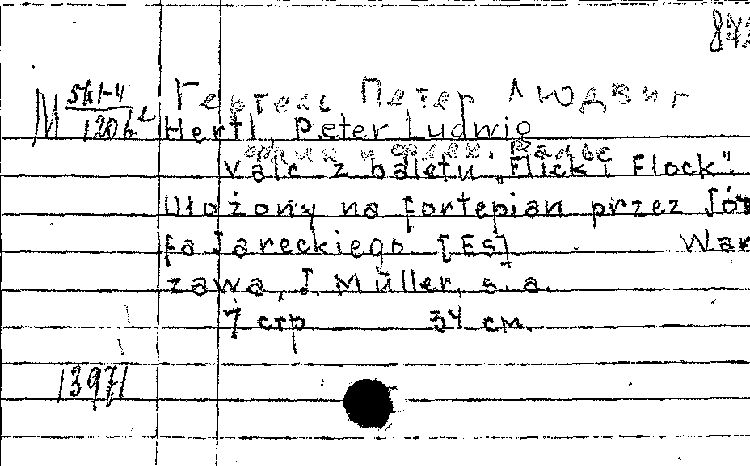 873
М 5К1-4
120б2
Гертель Петер Людвиг
Hertl, Peter Ludwig
Valc z baletu „Flick i Flock".
Ułożony na fortepian przez Józe
fa Jareckiego [Es] War
zawa, J. Müller, s. a.
7 стр 34 см.
13971